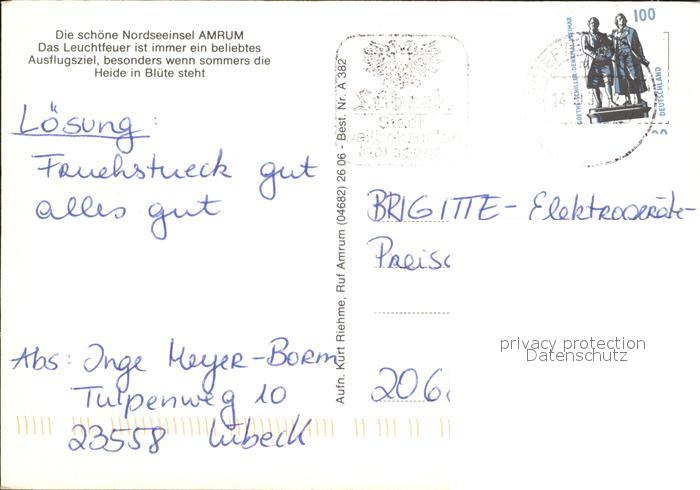 Die schöne Nordseeinsel AMRUM
Das Leuchtfeuer ist immer ein beliebtes
Ausflugsziel, besonders wenn sommers die
Heide in Blüte steht
Lösung:
Fruehstueck gut
alles gut
Abs: Inge Meyer-Borm
Tulpenweg 10
23558 Lübeck
Aufn. Kurt Riehme, Ruf Amrum (04682) 26 06 - Best. Nr. A 382
100
GOETHE-SCHILLER-DENKMAL WEIMAR
DEUTSCHLAND
BRIGITTE- Elektrogeräte-
Preis
206
privacy protection
Datenschutz